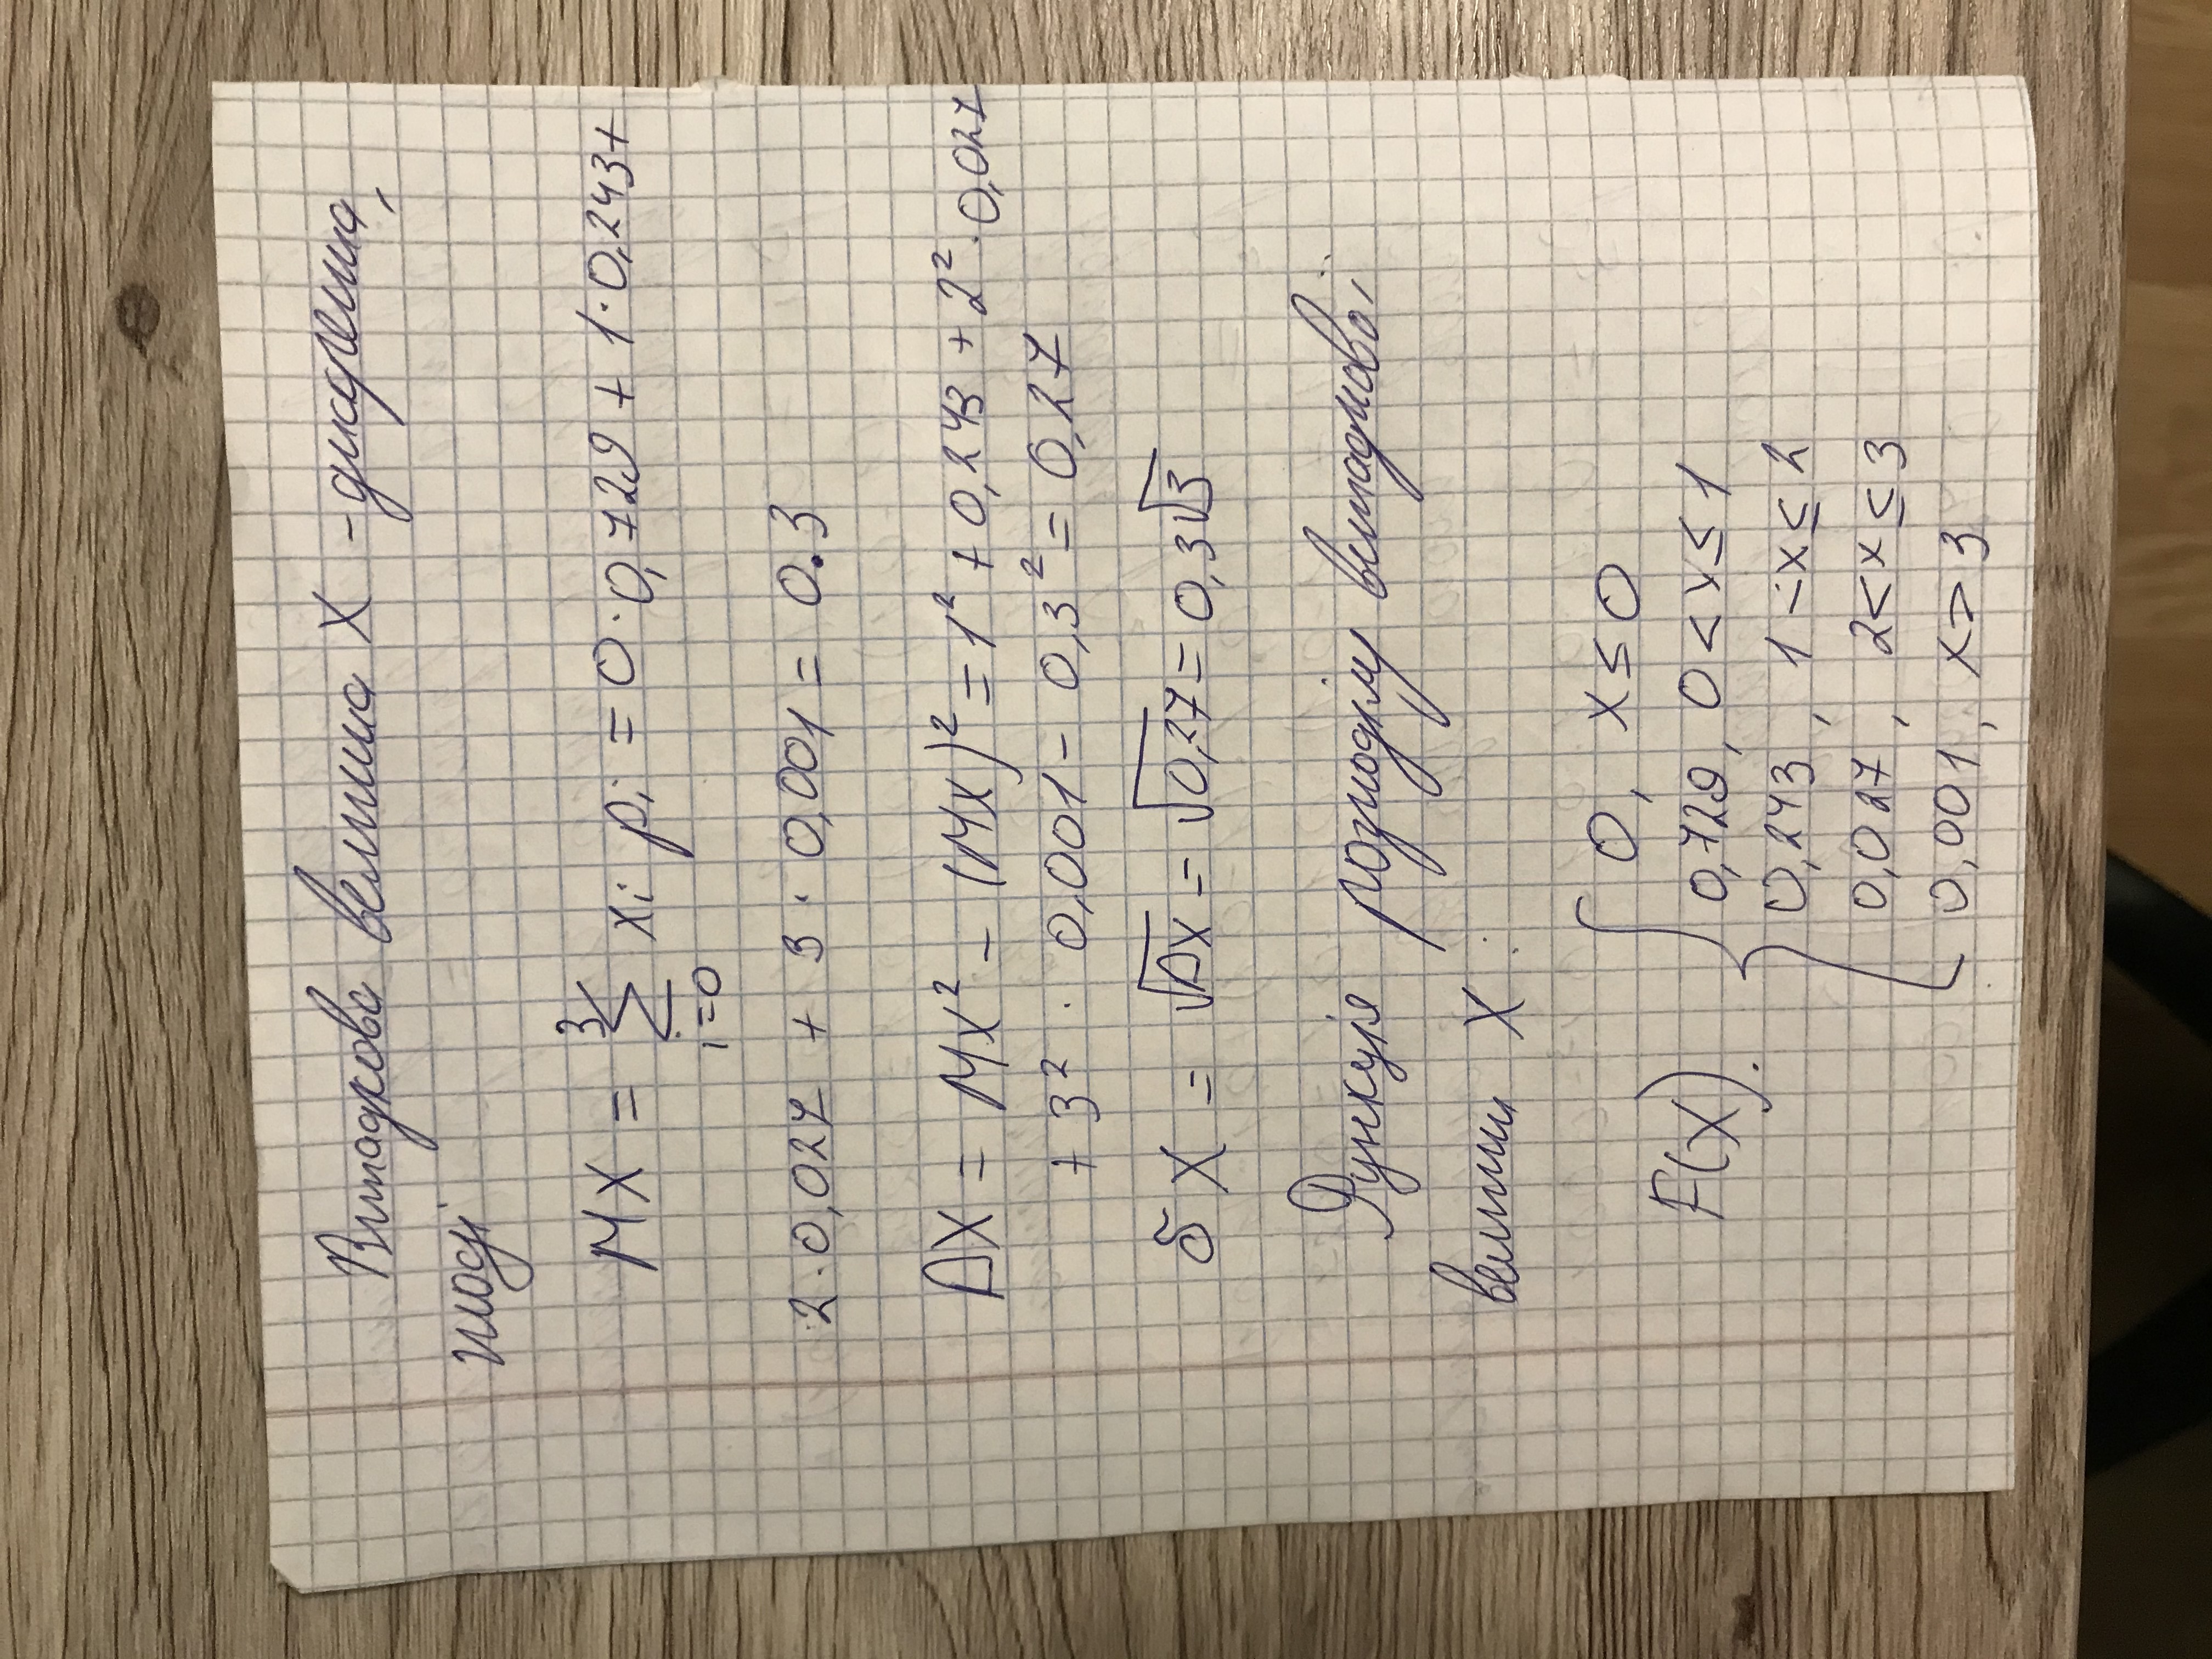 Випадкова величина X - дискретна,
тоді
MX = 3 ∑ i=0 xi pi = 0·0,729 + 1·0,243+
2·0,027 + 3·0,001 = 0.3
DX = MX² - (MX)² = 1² + 0,243 + 2²·0,027
+ 3² · 0,001 - 0,3² = 0,27
δX = √DX = √0,27 = 0,3√3
Функція розподілу випадкової
величини X :
0, x ≤ 0
F(X). 0,729, 0 < x ≤ 1
0,243, 1 < x ≤ 2
0,027, 2 < x ≤ 3
0,001, x > 3